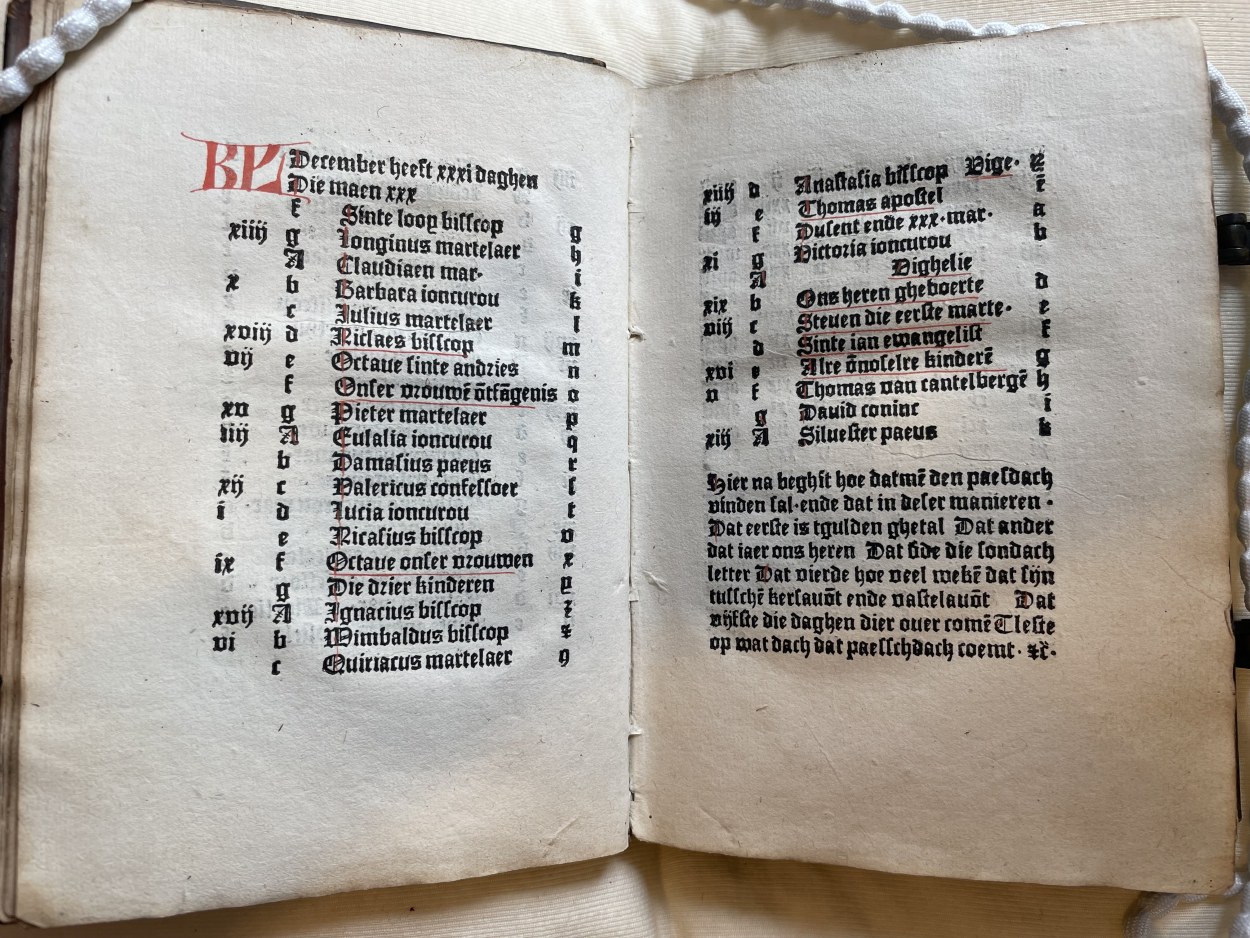 KL December heeft xxxi daghen
Die maen xxx
f Sinte looy bisscop g
xiiij g Longinus martelaer h
A Claudiaen mar. i
x b Barbara ioncurou k
c Julius martelaer l
xviij d Niclaes bisscop m
vij e Octaue sinte andries n
f Onser vrouwē ōtfāgenis o
xv g Pieter martelaer p
iiij A Eulalia ioncurou q
b Damasius paeus r
xij c Valericus confessoer s
i d Lucia ioncurou t
e Nicasius bisscop v
ix f Octaue onser vrouwen x
g Die drier kinderen y
xvij A Ignacius bisscop z
vi b Wimbaldus bisscop
c Quiriacus martelaer 9
xiiij d Anastasia bisscop Vige.
iij e Thomas apostel
f Dusent ende xxx. mar. a
xi g Victoria ioncurou b
A Vighelie
xix b Ons heren gheboerte d
viij c Steuen die eerste marte. e
d Sinte ian ewangelist f
xvi e Alre ōnoselre kinderē g
v f Thomas van cantelbergē h
g Dauid coninc i
xiij A Siluester paeus k
Hier na beghīt hoe datmē den paesdach
vinden sal. ende dat in deser manieren.
Dat eerste is tgulden ghetal Dat ander
dat iaer ons heren Dat derde die sondach
letter Dat vierde hoe veel wekē dat sijn
tusschē kersauōt ende vastelauōt Dat
vijfste die daghen dier ouer comē Tleste
op wat dach dat paesschdach coemt. ⁊c̄.